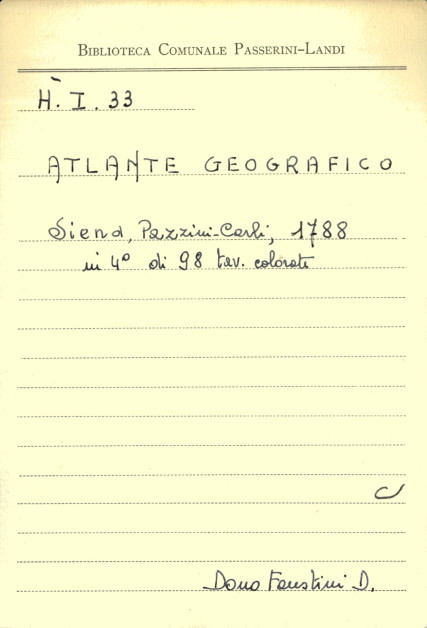 BIBLIOTECA COMUNALE PASSERINI-LANDI
H. I. 33
ATLANTE GEOGRAFICO
Siena, Pazzini-Carli, 1788
in 4° di 98 tav. colorate
Dono Faustini D.